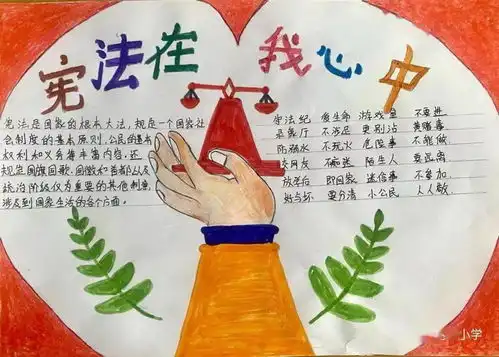 宪法在我心中
宪法是国家的根本大法，规定一个国家社
会制度的基本原则，公民的基本
权利和义务等丰富内容，还
规定国旗国歌、国徽和首都以及
统治阶级认为重要的其他制度，
涉及到国家生活的各个方面。
守法纪 爱生命 游戏室 不要进
不涉足 更别沾 黄赌毒
防溺水 不玩火 危险事 不能做
交网友 不 陌生人 要远离
放学后 即回家 迷信事 不参加
好与坏 要分清 小公民 人人
小学